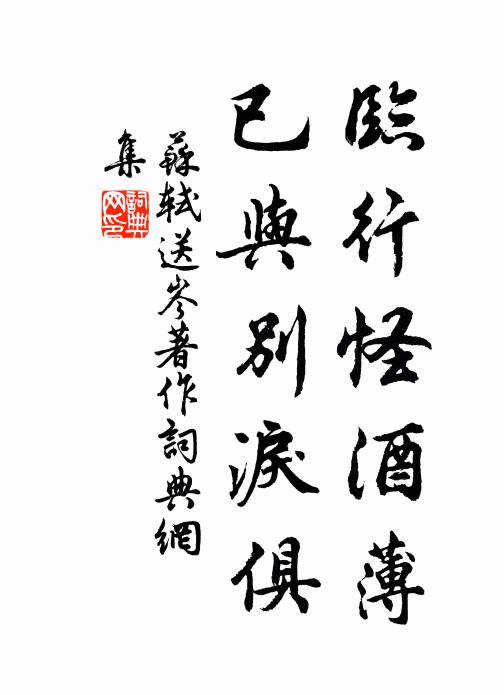 臨行怪酒薄
已與別淚俱
蘇軾送岑著作詞典網
集
詞典
网印